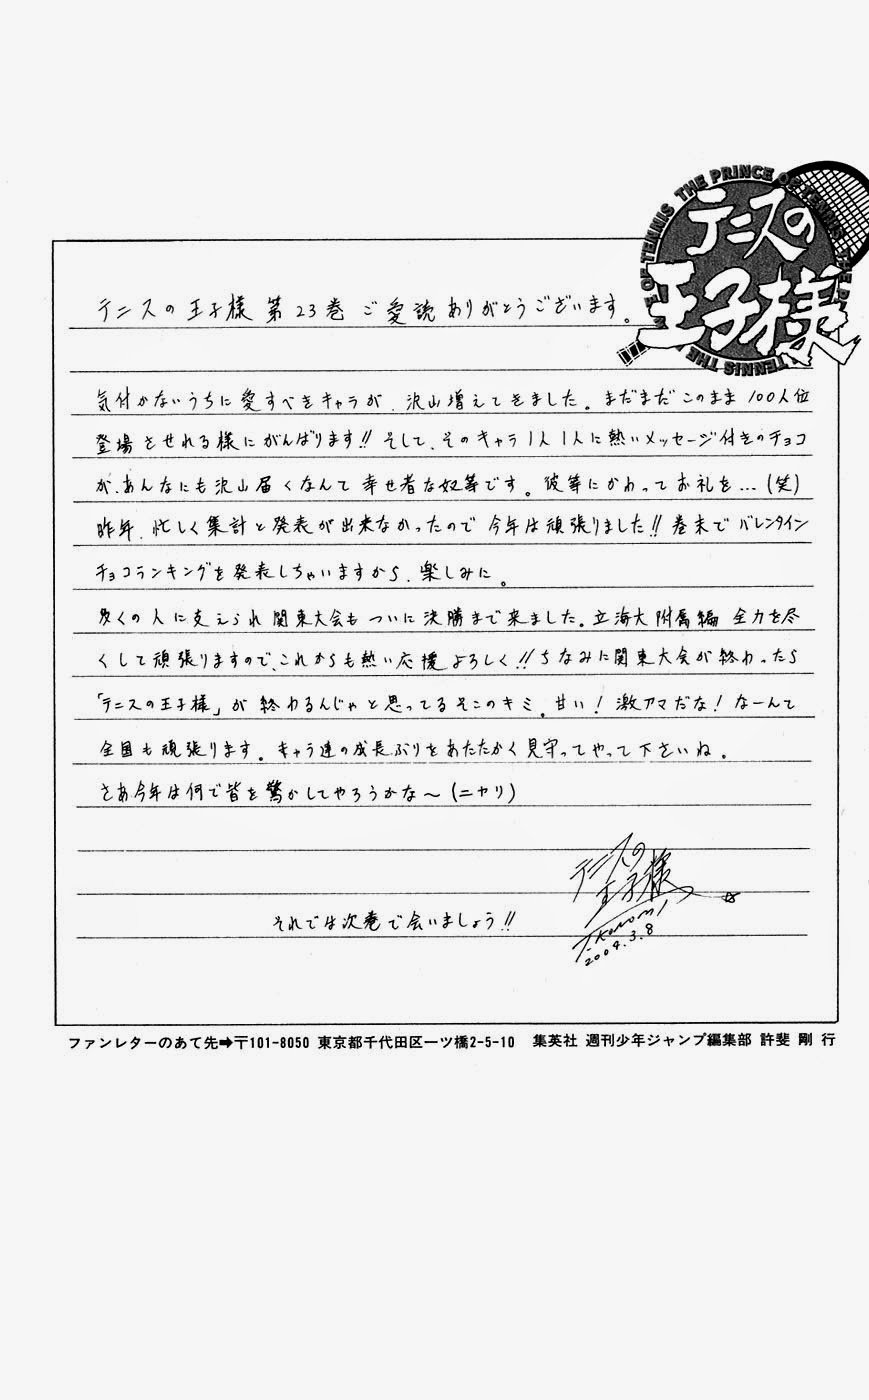 THE PRINCE OF TENNIS THE PRINCE OF TENNIS
テニスの
王子様
テニスの王子様 第23巻 ご愛読ありがとうございます。
気付かないうちに愛すべきキャラが、沢山増えてきました。まだまだこのまま100人位
登場させれる様にがんばります!! そして、そのキャラ1人1人に熱いメッセージ付きのチョコ
が、あんなにも沢山届くなんて幸せ者な奴等です。彼等にかわってお礼を…(笑)
昨年、忙しく集計と発表が出来なかったので今年は頑張りました!! 巻末でバレンタイン
チョコランキングを発表しちゃいますから、楽しみに。
多くの人に支えられ関東大会もついに決勝まで来ました。立海大附属編 全力を尽
くして頑張りますので、これからも熱い応援よろしく!! ちなみに関東大会が終わったら
「テニスの王子様」が終わるんじゃと思ってるそこのキミ。甘い! 激アマだな! なーんて
全国も頑張ります。キャラ達の成長ぶりをあたたかく見守ってやって下さいね。
さあ今年は何で皆を驚かしてやろうかな〜(ニヤリ)
テニスの
王子様
それでは次巻で会いましょう!!
T.Konomi
2004.3.8
ファンレターのあて先➡〒101-8050 東京都千代田区一ツ橋2-5-10 集英社 週刊少年ジャンプ編集部 許斐 剛 行